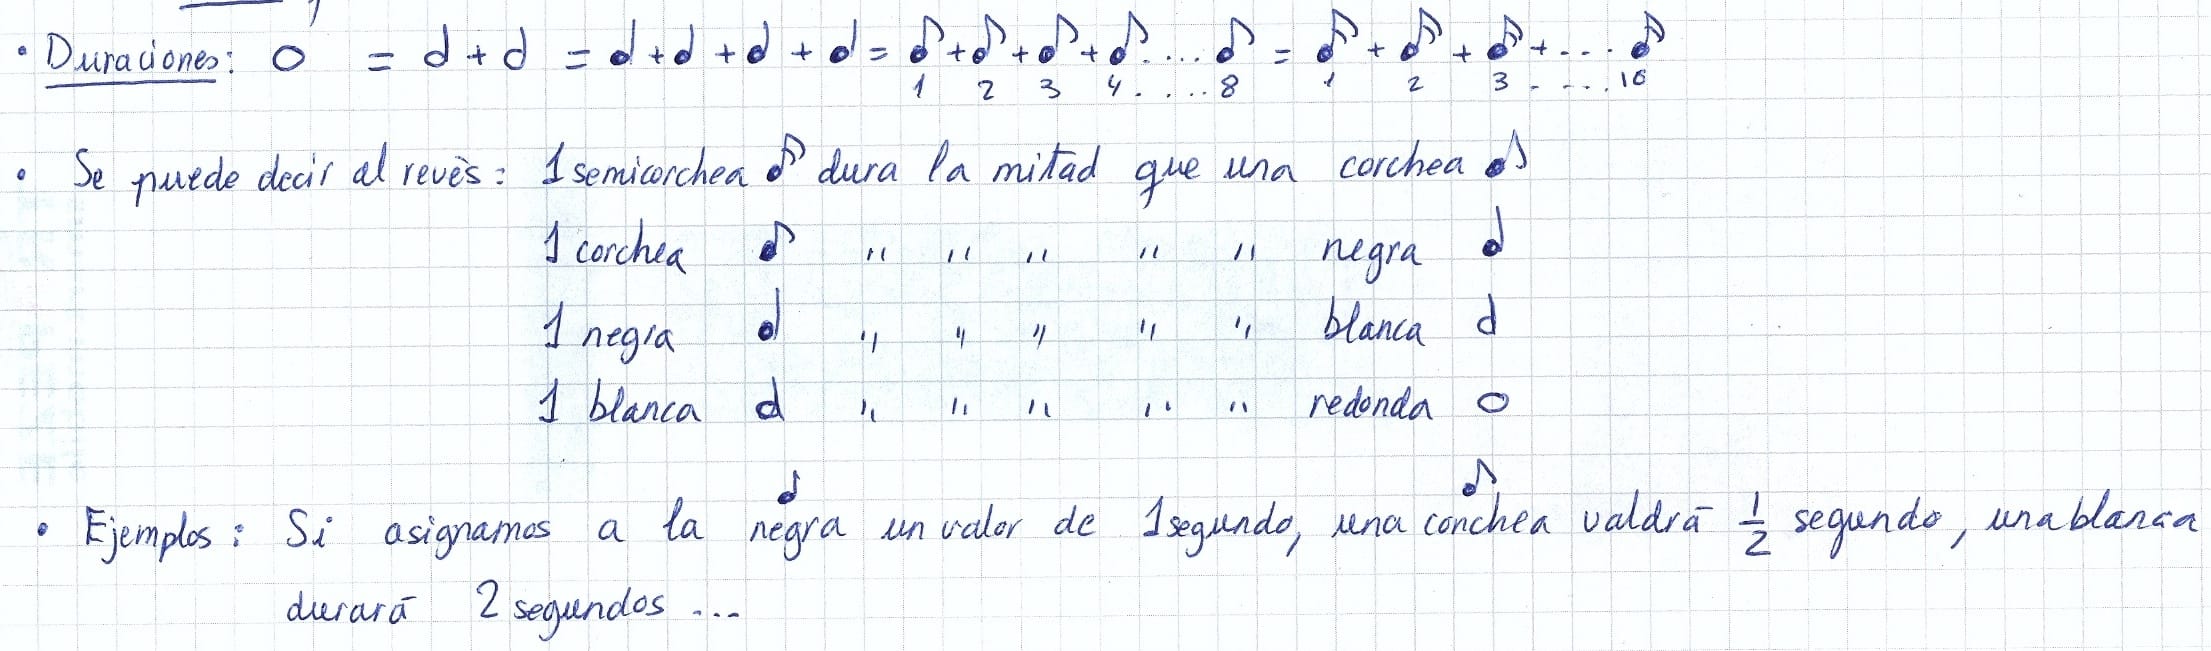 • Duraciones: 𝅝 = 𝅗𝅥 + 𝅗𝅥 = ♩ + ♩ + ♩ + ♩ = ♪ + ♪ + ♪ + ♪.... ♪ = 𝅘𝅥𝅯 + 𝅘𝅥𝅯 + 𝅘𝅥𝅯 + .... 𝅘𝅥𝅯
1 2 3 4 ..... 8 1 2 3 ..... 16
• Se puede decir al revés: 1 semicorchea 𝅘𝅥𝅯 dura la mitad que una corchea ♪
1 corchea ♪ " " " " " negra ♩
1 negra ♩ " " " " " blanca 𝅗𝅥
1 blanca 𝅗𝅥 " " " " " redonda 𝅝
♩ ♪
• Ejemplos: Si asignamos a la negra un valor de 1 segundo, una conchea valdrá 1/2 segundo, una blanca
durará 2 segundos ...